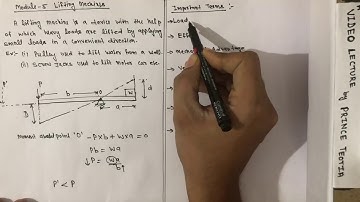 Module-5 Lifting Machines
A lifting machine is a device with the help
of which heavy loads are lifted by applying
small loads in a convenient direction.
Ex:- (i) Pulley used to lift water from a well.
(ii) Screw Jacks used to lift motor car etc.
P'
P
b
a
W
d
D
O
Moment about point 'O' -P×b + W×a = 0
Pb = Wa
↓P = Wa
b↑
P' < P
Important Terms :-
Load
VIDEO LECTURE by PRINCE TEOTIA